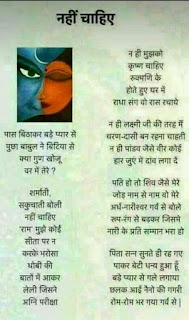 नहीं चाहिए
पास बिठाकर बड़े प्यार से
पुछा बाबुल ने बिटिया से
क्या गुण खोजू
वर में तेरे ?
शर्माती,
सकुचाती बोली
नहीं चाहिए
'राम' मुझे कोई
सीता पर न
करके भरोसा
धोबी की
बातों में आकर
लेली जिसने
अग्नि परीक्षा
न ही मुझको
कृष्ण चाहिए
रुक्मणि के
होते हुए घर में
राधा संग वो रास रचाये
न ही लक्ष्मी जी की तरह मैं
चरण-दासी बन रहना चाहती
न ही पांडव जैसे वीर कोई
हार जुएं में दांव लगा दें
पति हो तो शिव जैसे मेरे
जोड़ नाम से नाम वो मेरे
अर्ध-नारीश्वर गर्व से बोले
रूप-रंग से बढ़कर जिसमे
नारी के प्रति सम्मान भरा हो
पिता सन्न सुनते ही रह गए
पाकर बेटी धन्य हुआ हूँ
बड़े प्यार से गले लगाया
छलक आई नैनो की गगरी
रोम-रोम भर गया गर्व से |